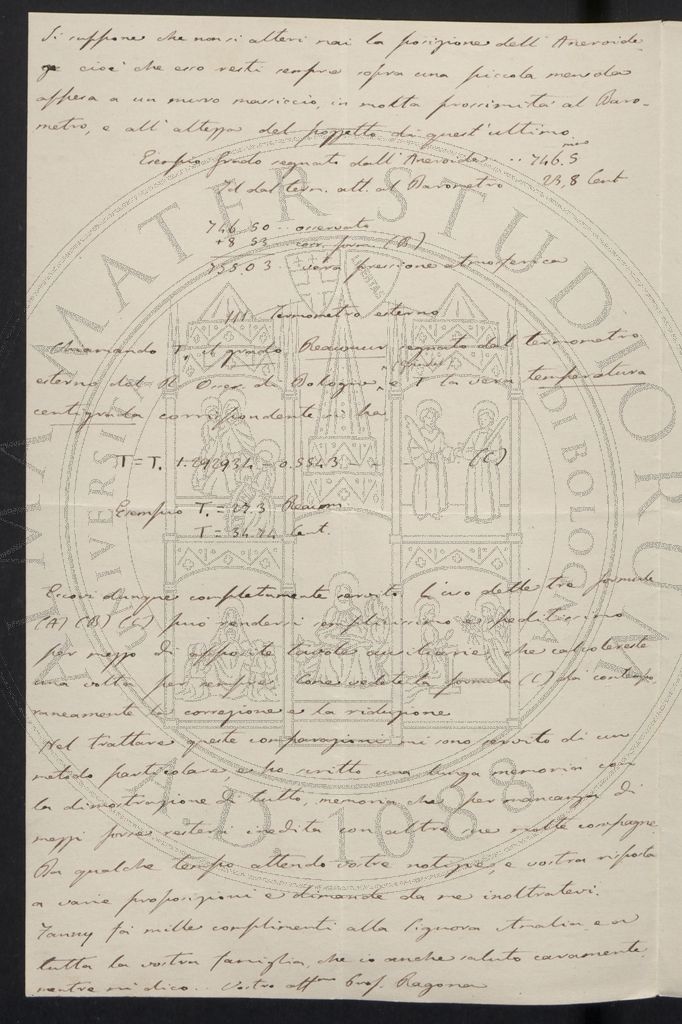 Si suppone che non si alteri mai la posizione dell'Aneroide
cioè che esso resti sempre sopra una piccola mensola
appesa a un muro massiccio, in molta prossimità al Baro-
metro, e all'altezza del pozzetto di quest'ultimo
Esempio Grado segnato dall'Aneroide .. 746.5
Id dal term. att. al Barometro 23,8 Cent
746.50 .. osservata
+8 53 corr. form. (B)
755.03 .. vera pressione atmosferica
III Termometro esterno
Chiamando T, il grado Reaumur segnato dal termometro
esterno del R. Oss. di Bologna, e T la vera temperatura
centigrada corrispondente si ha
T = T, 1.292934 - 0.5543 - - (C)
Esempio T, = 27.3 Reaum
T = 34.74 Cent.
Eccovi dunque completamente servito. L'uso delle tre formule
(A) (B) (C) può rendersi semplicissimo e speditissimo
per mezzo di apposite tavole ausiliarie che calcolereste
una volta per sempre. Come vedete la formola (C) dà contempo
raneamente la correzione e la riduzione
Nel trattare queste comparazioni mi sono servito di un
metodo particolare, e ho scritto una lunga memoria con
la dimostrazione di tutto, memoria che per mancanza di
mezzi forse resterà inedita con altre sue molte compagne
Da qualche tempo attendo vostre notizie, e vostra risposta
a varie proposizioni e dimande da me inoltratevi.
Fanny fa mille complimenti alla Signora Amalia e a
tutta la vostra famiglia, che io anche saluto caramente
mentre mi dico .. Vostro aff.mo Prof. Ragona
ALMA MATER STUDIORUM
UNIVERSITÀ DI BOLOGNA
A.D. 1088
LIBERTAS